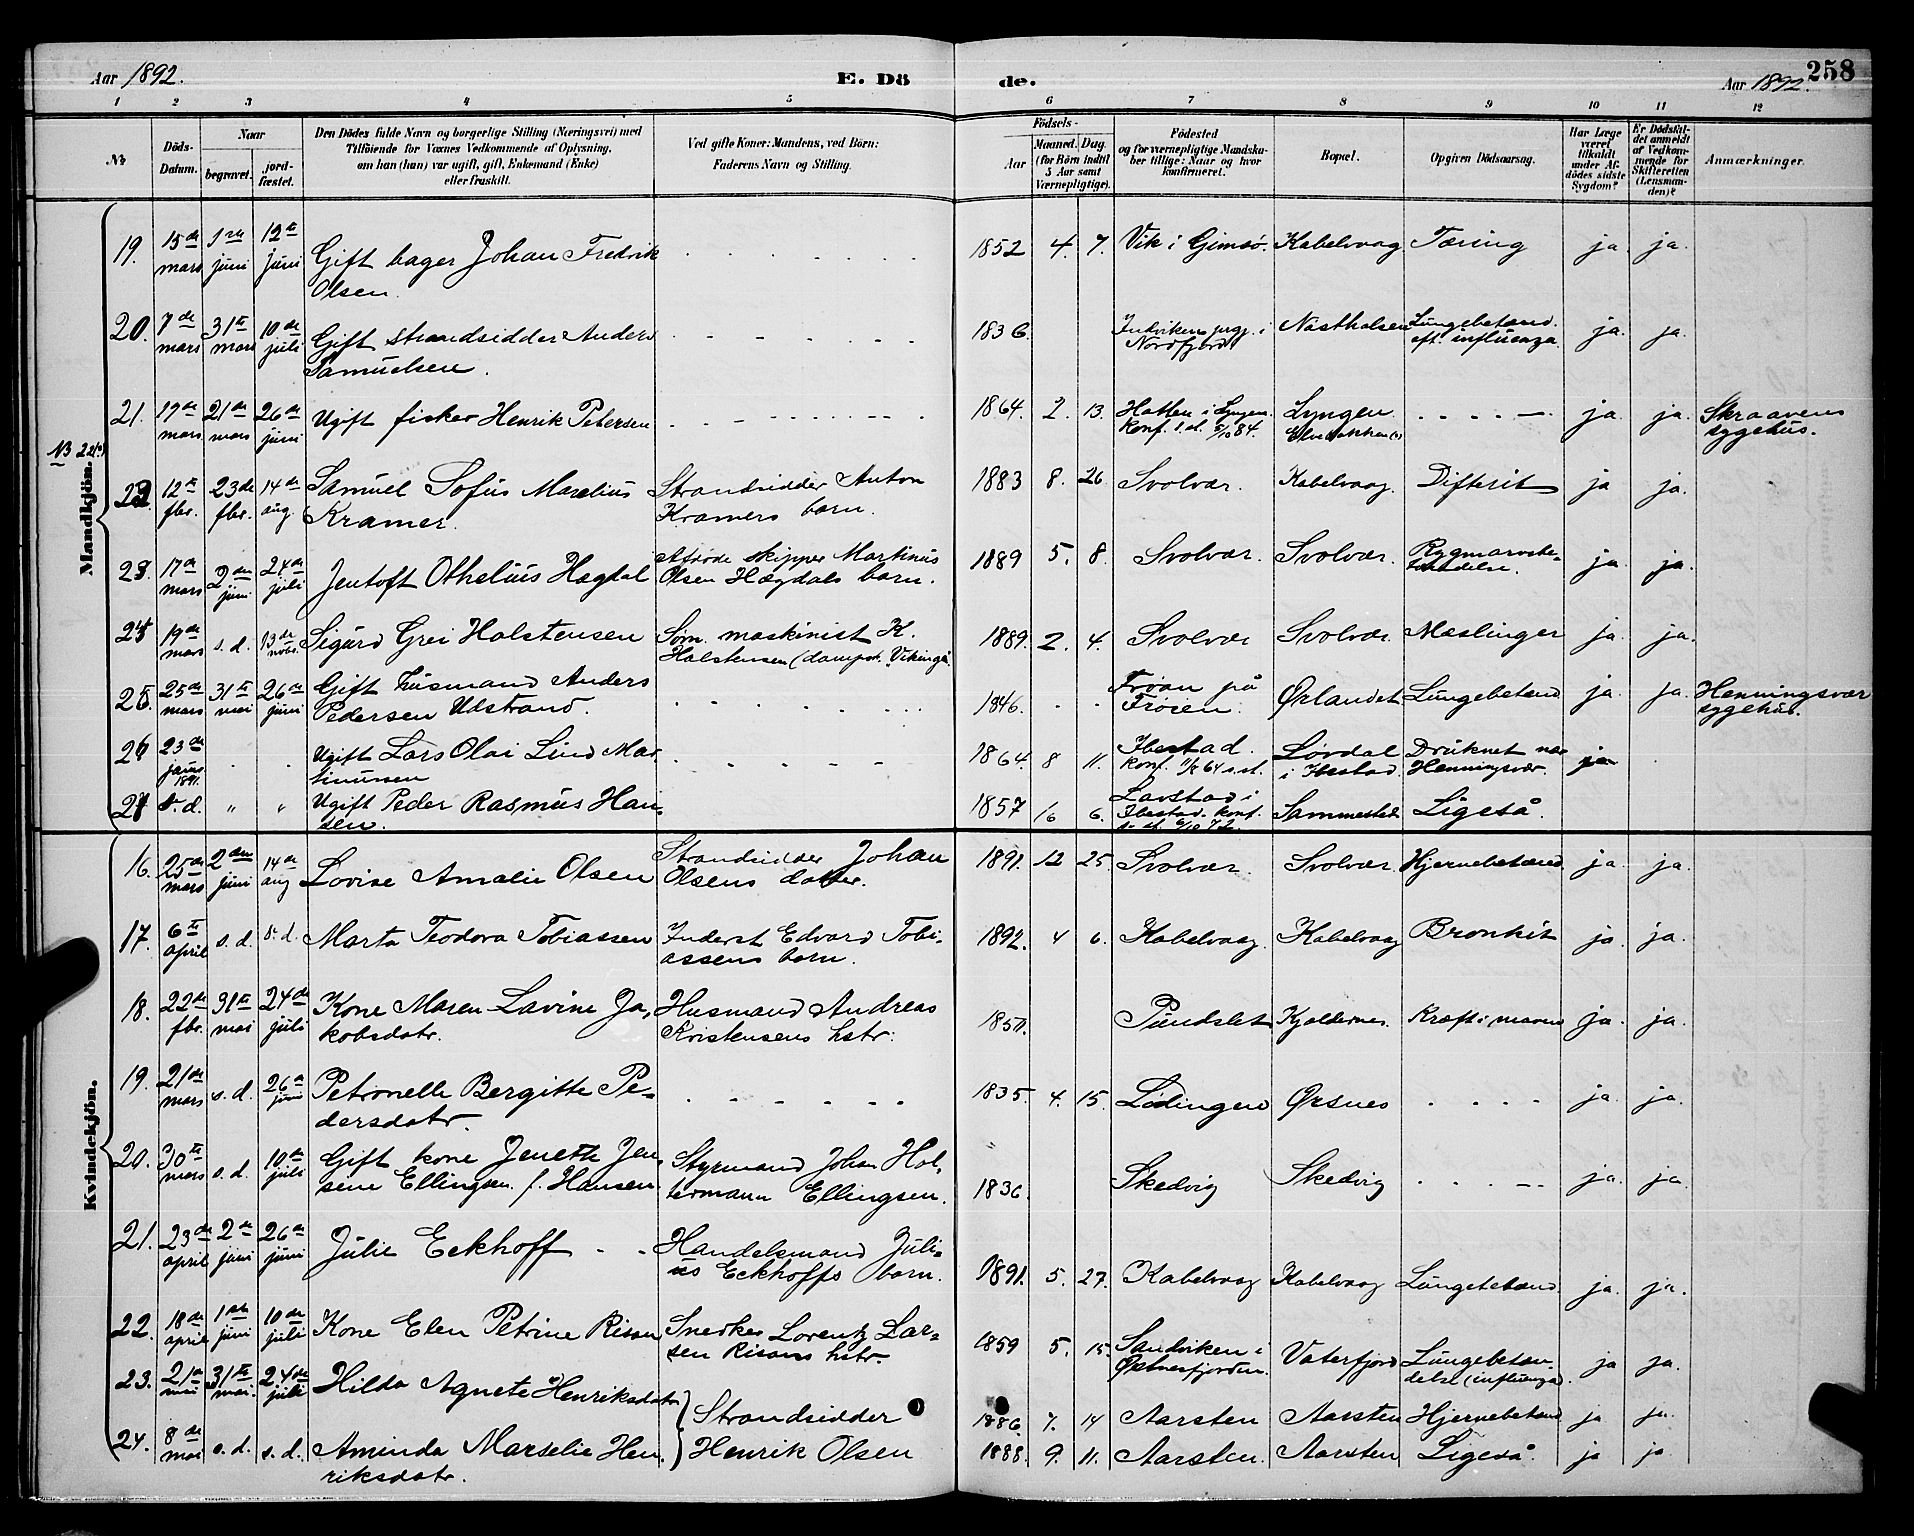 Aar 1892.
E. Dö
de.
Aar 1892.
258
1 2 3 4 5 6 7 8 9 10 11 12
No
Döds-Datum.
Naar
begravet.
jord-fæstet.
Den Dödes fulde Navn og borgerlige Stilling (Næringsvei) med
Tilföiende for Voxnes Vedkommende af Oplysning,
om han (hun) var ugift, gift, Enkemand (Enke)
eller fraskilt.
Ved gifte Koner: Mandens, ved Börn:
Faderens Navn og Stilling.
Födsels-
Aar
Maaned. Dag.
(for Börn indtil
5 Aar samt
Værnepligtige).
Födested
og for værnepligtige Mandska-
ber tillige: Naar og hvor
konfirmeret.
Bopæl.
Opgiven Dödsaarsag.
Har Læge
været
tilkaldt
under Af-
dödes sidste
Sygdom?
Er Dödsfal-
det anmeldt
af Vedkom-
mende for
Skifteretten
(Lensman-
den)?
Anmærkninger.
Mandkjön.
19. 15de mars 1ste juni 12te juni Gift bager Johan Fredrik Olsen. 1852 4. 7. Vik i Gimsö. Kabelvaag Tæring ja. ja.
20. 7de mars 31te mars 10de juli Gift strandsidder Anders Samuelsen. 1836 Indviken prgj. i Nordfjord Lungebetænd. eft. influenza ja. ja.
21. 17de mars 21de mars 26de juni Ugift fisker Henrik Petersen 1864. 2. 13. i Lyngen. Konf. 84. Lyngen ja. ja. Skraavens sygehus.
22. 12te fbr. 23de fbr. 14de aug. Samuel Sofus Marelius Kramer. Strandsidder Anton Kramers barn. 1883 8. 26. Svolvær. Kabelvaag. Difterit ja ja.
23. 17de mars 2den juni 24de juli Jentoft Othelius Hægdal Afdöde skipper Martinus Olsen Hægdals barn. 1889 5. 8. Svolvær. Svolvær. Rygmarvsbetændelse. ja. ja.
24. 19de mars s. d. 13de novbr. Sigurd Grei Holstensen Söm. maskinist K. Holstensen (dampsk. "Viking"). 1889. 2. 4. Svolvær Svolvær. Mæslinger ja. ja.
25. 25de mars 31te mai 26de juni Gift husmand Anders Pedersen Udstrand. 1846. Fröan på Frosen. Ørlandet Lungebetænd ja. ja. Henningsvær sygehus.
26. 23de 1891. Ugift Lars Olai Lind Martinussen 1864. 8 11. Ibestad. konf. Lövdal i Ibestad. Druknet nær Henningsvær. ja
27. s. d. " " Ugift Peder Rasmus Hansen. 1857 6. Ibestad. konf. Sammested Ligeså.
Kvindekjön.
16. 25de mars 2den juni 14de aug Lovise Amalie Olsen Strandsidder Johan Olsens datter. 1891. 12 25. Svolvær. Svolvær. Hjernebetænd ja. ja.
17. 6te april s. d. s. d. Marta Teodora Tobiassen Inderst Edvard Tobiassens barn. 1892. 4 6. Kabelvaag. Kabelvaag Bronkit ja. ja.
18. 22de fbr. 31te mai 24de juli Kone Maren Lavine Jakobsdatr. Husmand Andreas Kristensens hstr. 1851. Pundslet Kjeldernes. Kræft i maven ja. ja.
19. 21de mars s. d. 26de juni Petronelle Bergitte Pedersdatr. 1835. 4. 15. Lödingen Ørsnes ja. ja.
20. 30te mars s. d. 10de juli Gift kone Jenette Jensine Ellingsen f. Hansen. Styrmand Johan Holtermann Ellingsen. 1836. Skedvig Skedvig ja. ja.
21. 23de april 2de juni 26de juni Julie Eckhoff Handelsmand Julius Eckhoffs barn. 1891. 5. 27. Kabelvaag Kabelvaag Lungebetænd ja. ja.
22. 18de april 1ste juni 10de juli Kone Elen Petrine Risan Snedker Lorentz Larsen Risans hstr. 1859 5. 15. Sandviken i Østnesfjorden. Vaterfjord Lungebetændelse (influenza). ja ja.
23. 21de mai 31te mai. 24de juli Hilda Agnete Henriksdatr } Strandsidder 1886 7. 14 Aarsten Aarsten Hjernebetænd ja ja.
24. 8de mai s. d. s. d. Aminda Marselie Henriksdatr. } Henrik Olsen 1888. 9. 11. Aarsten. Aarsten Ligeså. ja ja.